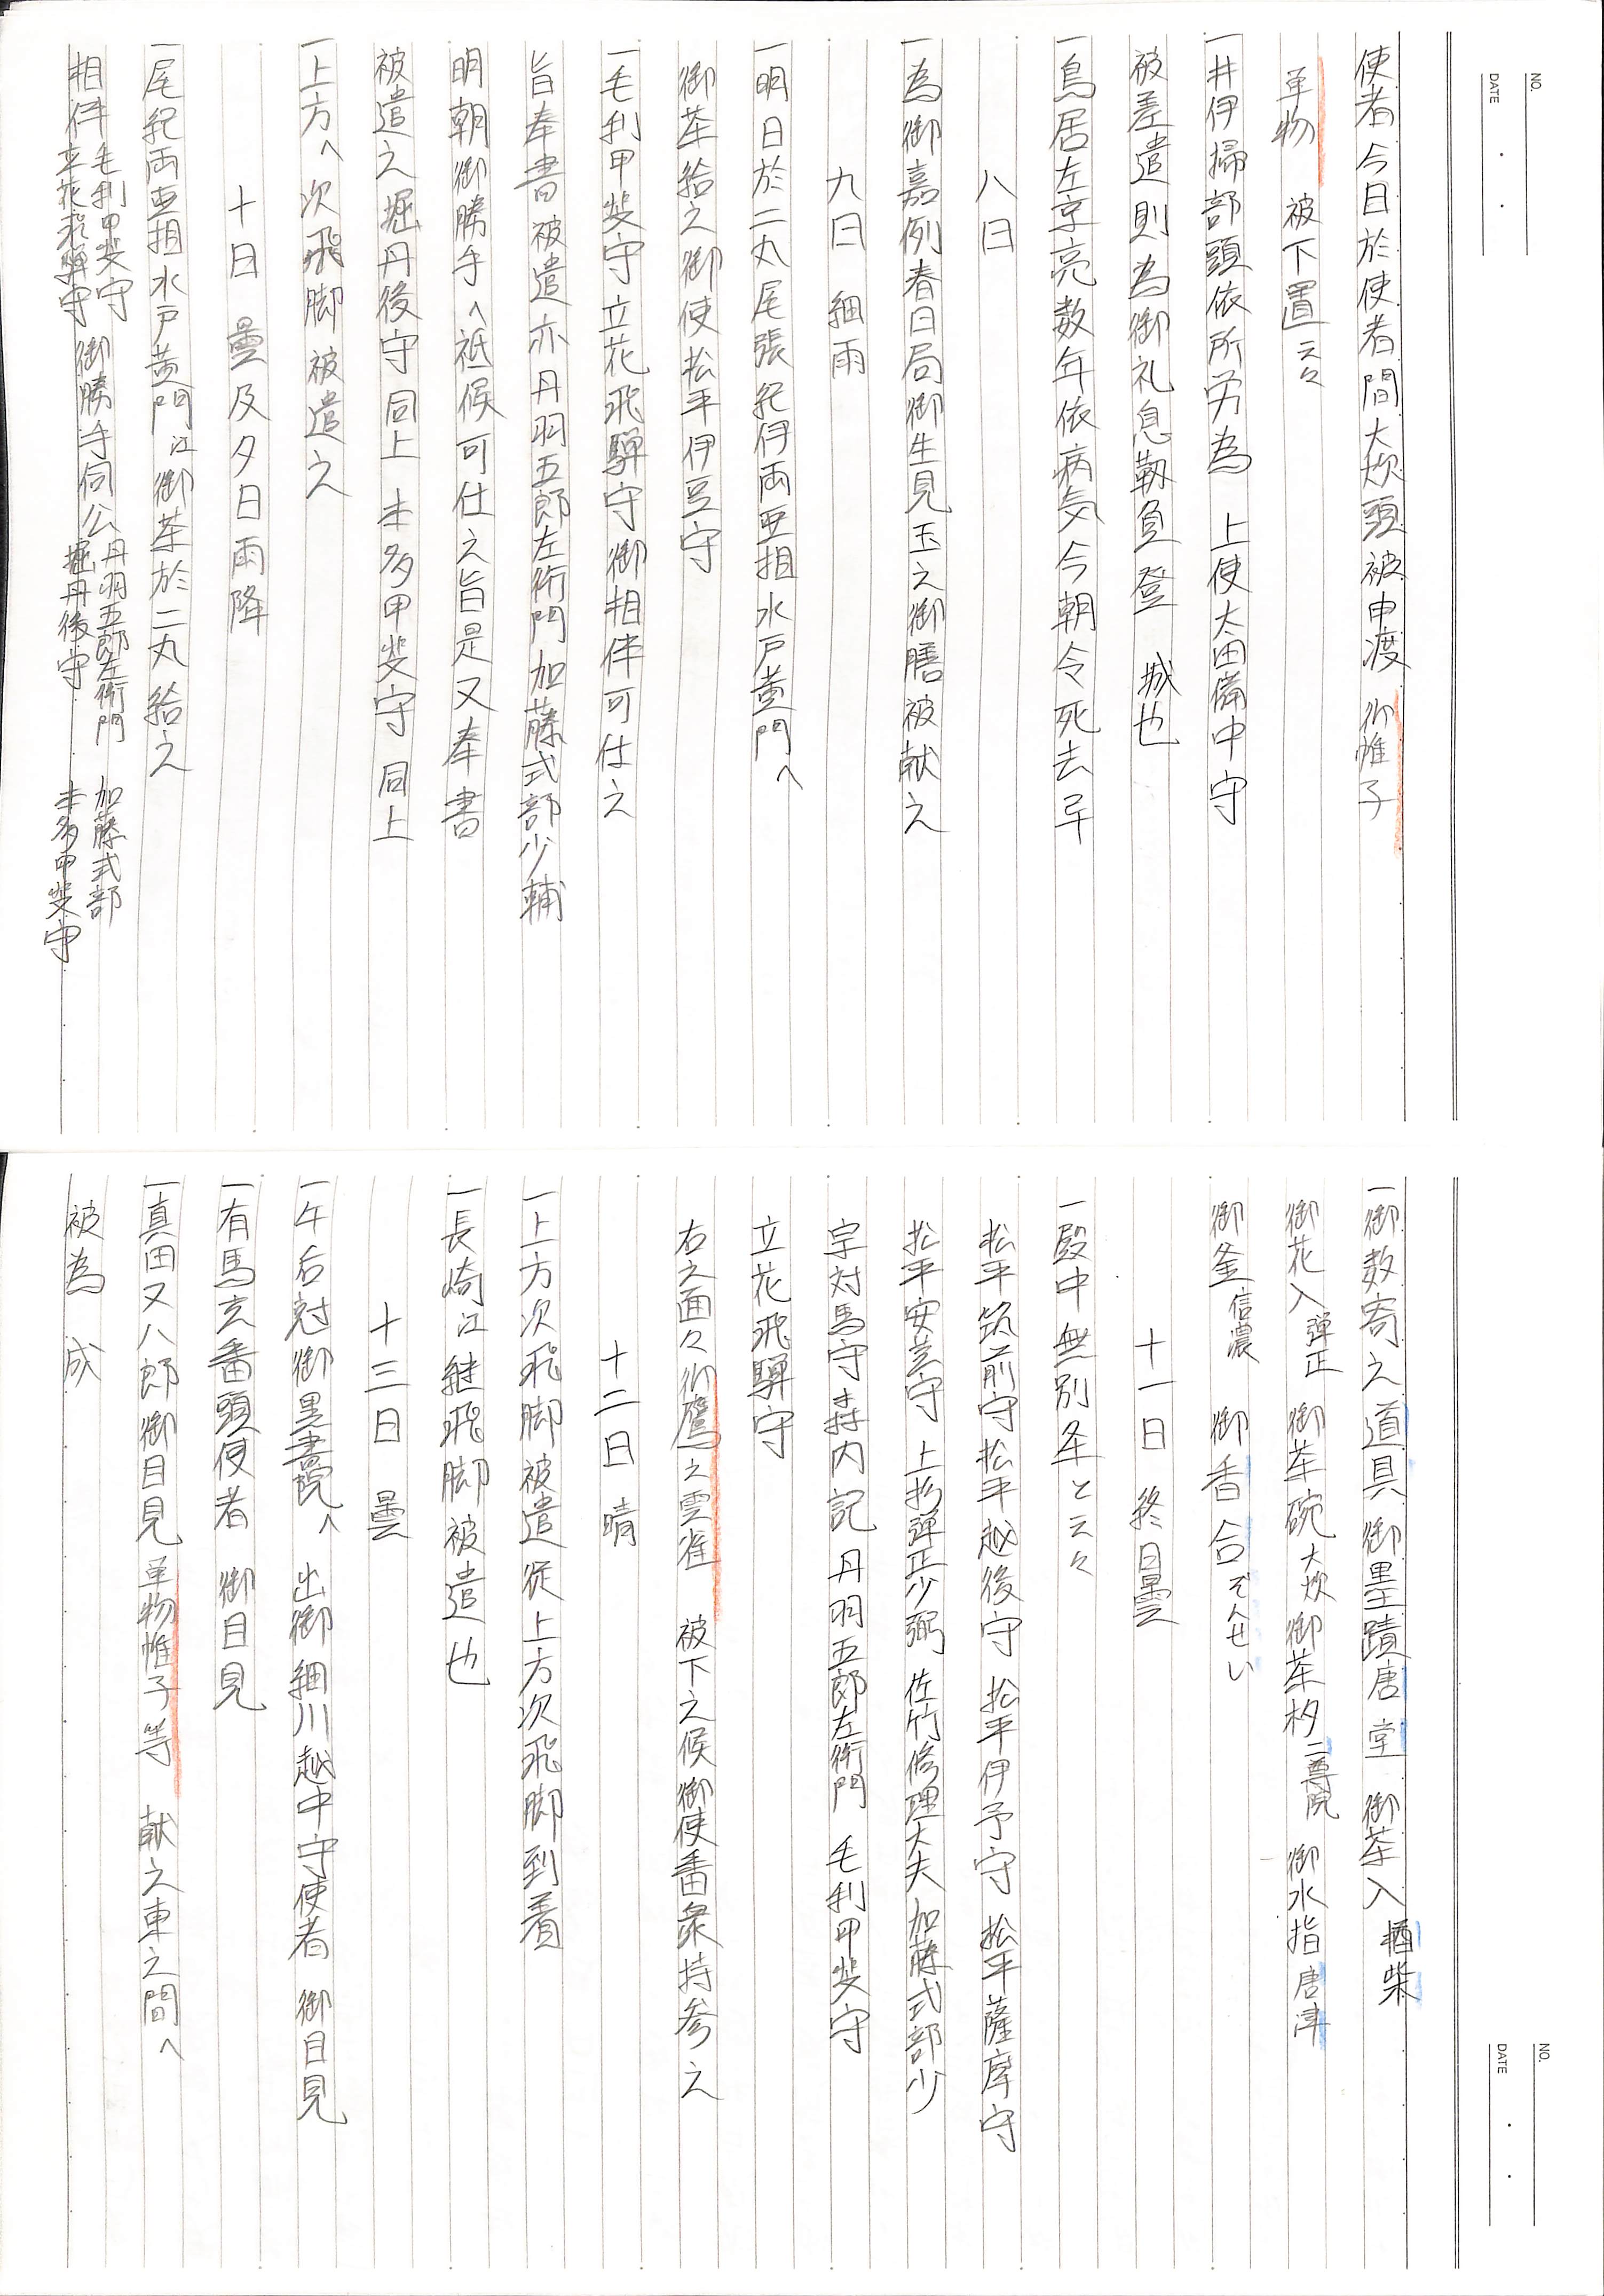 NO.
DATE
使者今日於使者間大炊頭被申渡 御帷子
単物 被下置云々
一井伊掃部頭依所労為 上使太田備中守
被差遣則為御礼息靱負登 城也
一鳥居左京亮数年依病気今朝令死去畢
八日
一為御嘉例春日局御生見玉之御膳被献之
九日 細雨
一明日於二丸尾張紀伊両亜相水戸黄門へ
御茶給之御使松平伊豆守
一毛利甲斐守立花飛騨守御相伴可仕之
旨奉書被遣亦丹羽五郎左衛門加藤式部少輔
明朝御勝手へ祗候可仕之旨是又奉書
被遣之堀丹後守同上 本多甲斐守同上
一上方へ次飛脚被遣之
十日 曇及夕日雨降
一尾紀両亜相水戸黄門江御茶於二丸給之
相伴 毛利甲斐守 立花飛騨守 御勝手伺公 丹羽五郎左衛門 堀丹後守 加藤式部 本多甲斐守
NO.
DATE
一御数寄之道具御墨蹟唐堂 御茶入 酉柴
御花入 弾正 御茶碗 大炊 御茶杓 二尊院 御水指 唐津
御釜 信濃 御香合 ぞんせい
十一日 終日曇
一殿中無別条と云々
松平筑前守松平越後守 松平伊予守 松平薩摩守
松平安芸守 上杉弾正少弼 佐竹修理大夫 加藤式部少
宗対馬守 森内記 丹羽五郎左衛門 毛利甲斐守
立花飛騨守
右之面々御鷹之雲雀 被下之候御使番衆持参之
十二日 晴
一上方次飛脚被遣従上方次飛脚到着
一長崎江継飛脚被遣也
十三日 曇
一午后尅御黒書院へ 出御 細川越中守使者 御目見
一有馬玄番頭使者 御目見
一真田又八郎御目見 単物帷子等 献之車之間へ
被為 成